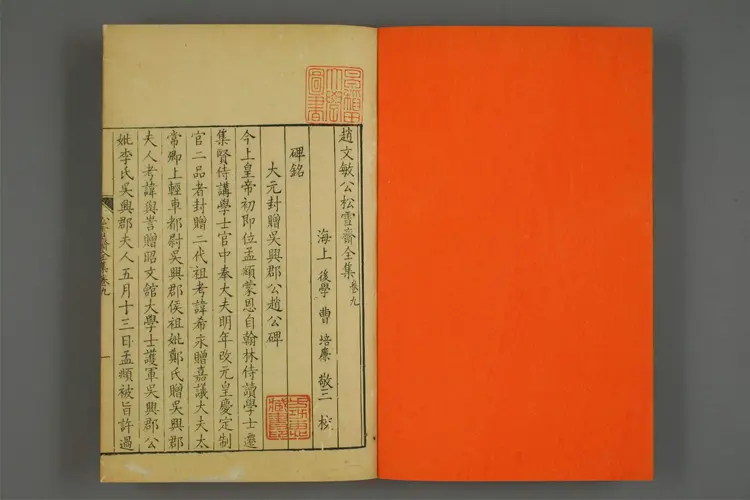 趙文敏公松雪齋全集卷九
海上後學曹培廉敬三校
碑銘
大元封贈吳興郡公趙公碑
今上皇帝初即位孟頫蒙恩自翰林侍讀學士遷
集賢侍講學士官中奉大夫明年改元皇慶定制
官二品者封贈二代祖考諱希永贈嘉議大夫太
常卿上輕車都尉吳興郡侯祖妣鄭氏贈吳興郡
夫人考諱與訔贈昭文館大學士護軍吳興郡公
妣李氏吳興郡夫人五月十三日孟頫被旨許過
雪齋全集卷九
早稻田大學圖書